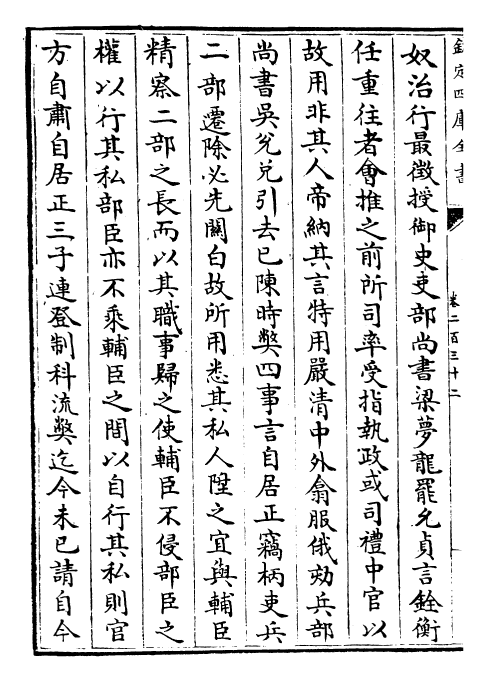 欽定四庫全書
卷二百三十二
奴治行最徵授御史吏部尚書梁夢龍罷允貞言銓衡
任重往者會推之前所司率受指執政或司禮中官以
故用非其人帝納其言特用嚴清中外翕服俄劾兵部
尚書吳兌兌引去已陳時弊四事言自居正竊柄吏兵
二部遷除必先關白故所用悉其私人陛之宜與輔臣
精察二部之長而以其職事歸之使輔臣不侵部臣之
權以行其私部臣亦不乘輔臣之間以自行其私則官
方自肅自居正三子連登制科流弊迄今未已請自今